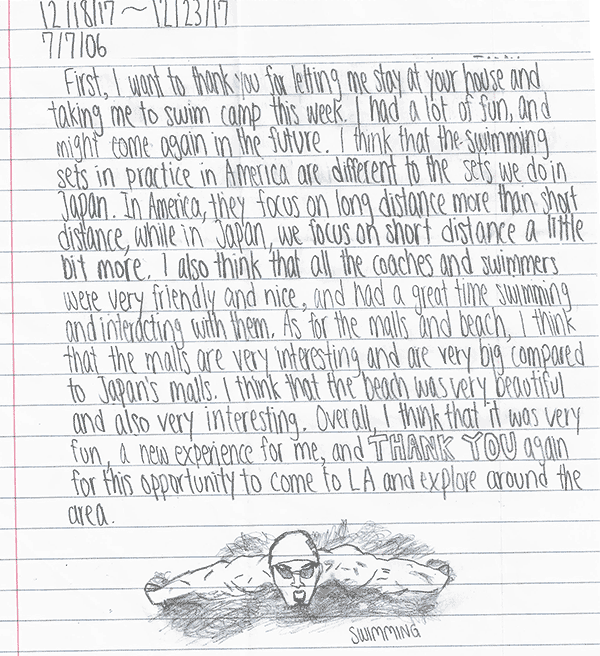 12/18/17 ~ 12/23/17
7/7/06
First, I want to thank you for letting me stay at your house and
taking me to swim camp this week. I had a lot of fun, and
might come again in the future. I think that the swimming
sets in practice in America are different to the sets we do in
Japan. In America, they focus on long distance more than short
distance, while in Japan, we focus on short distance a little
bit more. I also think that all the coaches and swimmers
were very friendly and nice, and had a great time swimming
and interacting with them. As for the malls and beach, I think
that the malls are very interesting and are very big compared
to Japan's malls. I think that the beach was very beautiful
and also very interesting. Overall, I think that it was very
fun, a new experience for me, and THANK YOU again
for this opportunity to come to LA and explore around the
area.
SWIMMING